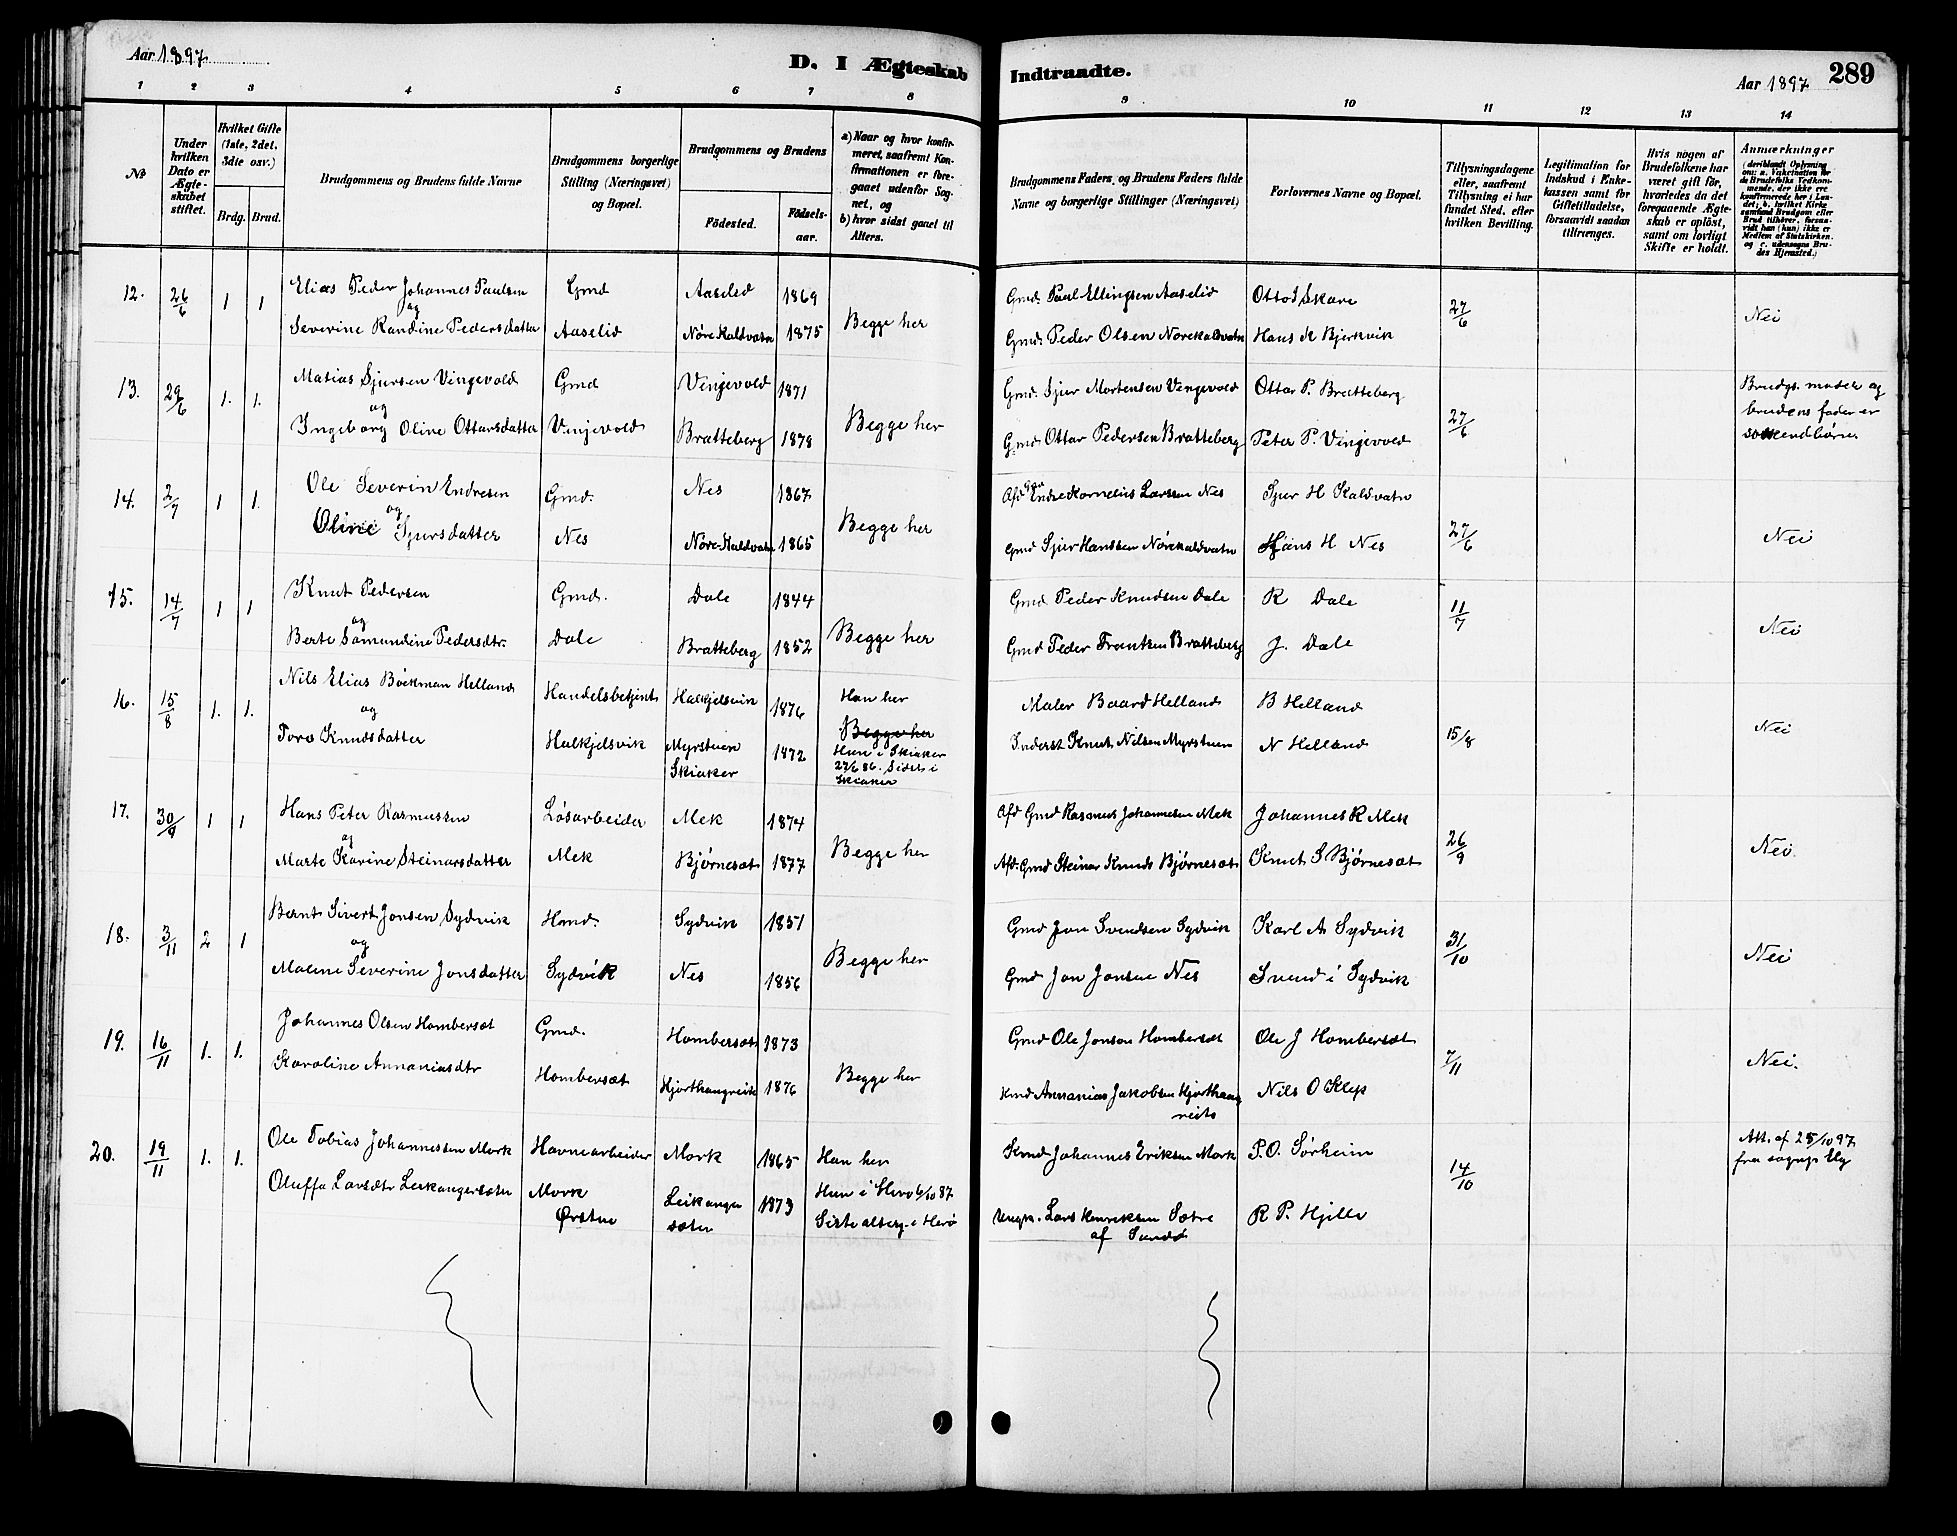 Aar 1897
D. I Ægteskab
Indtraadte.
Aar 1897
289
1 2 3 4 5 6 7 8 9 10 11 12 13 14
No
Under hvilken Dato er Ægteskabet stiftet.
Hvilket Gifte (1ste, 2det, 3die osv.)
Brdg. Brud.
Brudgommens og Brudens fulde Navne
Brudgommens borgerlige Stilling (Næringsvei) og Bopæl.
Brudgommens og Brudens
Fødested. Fødselsaar.
a) Naar og hvor konfirmeret, saafremt Konfirmationen er foregaaet udenfor Sognet, og
b) hvor sidst gaaet til Alters.
Brudgommens Faders, og Brudens Faders fulde Navne og borgerlige Stillinger (Næringsvei)
Forlovernes Navne og Bopæl.
Tillysningsdagene eller, saafremt Tillysning ei har fundet Sted, efter hvilken Bevilling.
Legitimation for Indskud i Enkekassen samt for Giftetilladelse, forsaavidt saadan tiltrænges.
Hvis nogen af Brudefolkene har været gift før, hvorledes da det foregaaende Ægteskab er opløst, samt om lovligt Skifte er holdt.
Anmærkninger
(deriblandt Oplysning om: a. Vakcination for de Brudefolks Vedkommende, der ikke ere konfirmerede her i Landet; b. hvilket Kirkesamfund Brudgom eller Brud tilhører, forsaavidt han (hun) ikke er Medlem af Statskirken, og c. udensogns Brudes Hjemsted.)
12. 26/6 1 1 Elias Peder Johannes Paulsen Gmd Aaselid 1869 Gmd. Paul Ellingsen Aaselid Otto I Skare 27/6
og Begge her Nei
Severine Randine Pedersdatter Aaselid Nøre Kaldvatn 1875 Gmd. Peder Olsen Nørekaldvatn Hans K Bjerkvik
13. 29/6 1. 1. Matias Sjursen Vingevold Gmd Vingevold 1871 Gmd. Sjur Mortensen Vingevold Ottar P. Bratteberg 27/6 Brudgs. moder og
og Begge her brudens fader er
Ingeborg Oline Ottarsdatter Vingevold Bratteberg 1878 Gmd Ottar Pedersen Bratteberg Peter P. Vingevold søskendbørn
14. 2/7 1 1. Ole Severin Endresen Gmd. Nes 1867 Afd Gm Endre Kornelius Larssen Nes Sjur H Kaldvatn 27/6
og Begge her Nei
Oline Sjursdatter Nes Nøre-Kaldvatn 1865 Gmd Sjur Hanssen Nørekaldvatn Hans H Nes
15. 14/7 1 1 Knut Pedersen Gmd. Dale 1844 Gmd Peder Knudsen Dale R Dale 11/7
og Begge her Nei
Berte Samundine Pedersdtr. Dale Bratteberg 1852 Gmd Peder Frantsen Bratteberg J. Dale
16. 15/8 1. 1. Nils Elias Bøckman Helland Handelsbetjent Halkjelsvik 1876 Han her Maler Baard Helland B Helland 15/8 Nei
og Begge her
Toro Knudsdatter Halkjelsvik Myrstuen Skiaker 1872 Hun i Skiaker Inderst Knut Nilsen Myrstuen N Helland
27/6 86. Sidst i
Skiaker
17. 30/9 1 1 Hans Peter Rasmussen Løsarbeider Mek 1874 Afd Gmd Rasmus Johannesen Mek Johannes R Mek 26/9
og Begge her Nei.
Marte Karine Steinarsdatter Mek Bjørneset 1877 Afd. Gmd Steinar Knuds Bjørneset Knut S Bjørneset
18. 3/11 2 1 Bernt Sivert Jonsen Sydvik Hmd. Sydvik 1851 Gmd Jon Svendsen Sydvik Karl A Sydvik 31/10
og Begge her Nei
Malene Severine Jonsdatter Sydvik Nes 1856 Gmd Jon Jonsen Nes Svend i Sydvik
19. 16/11 1. 1. Johannes Olsen Hombersæt Gmd. Hombersæt 1873 Gmd Ole Jonson Hombersæt Ole J Hombersæt 7/11
Begge her Nei.
Karoline Annaniasdtr Hombersæt Hjorthaugreit 1876 Kmd Annanias Jakobsen Hjorthaug reits Nils O Klep
20. 19/11 1. 1. Ole Tobias Johannessen Mork Havnearbeider Mork 1865 Han her Kmd Johannes Eriksen Mork P.O. Sørheim 14/10 Att. af 25/10 97
fra sognp.
Oluffa Larsdtr Leikangersæter Mork Ørsten Leikangersæter 1873 Hun i Herø 6/10 87 Lars Henriksen Sætre R P. Hjelle
Siste alterg. i Herø af Sandø